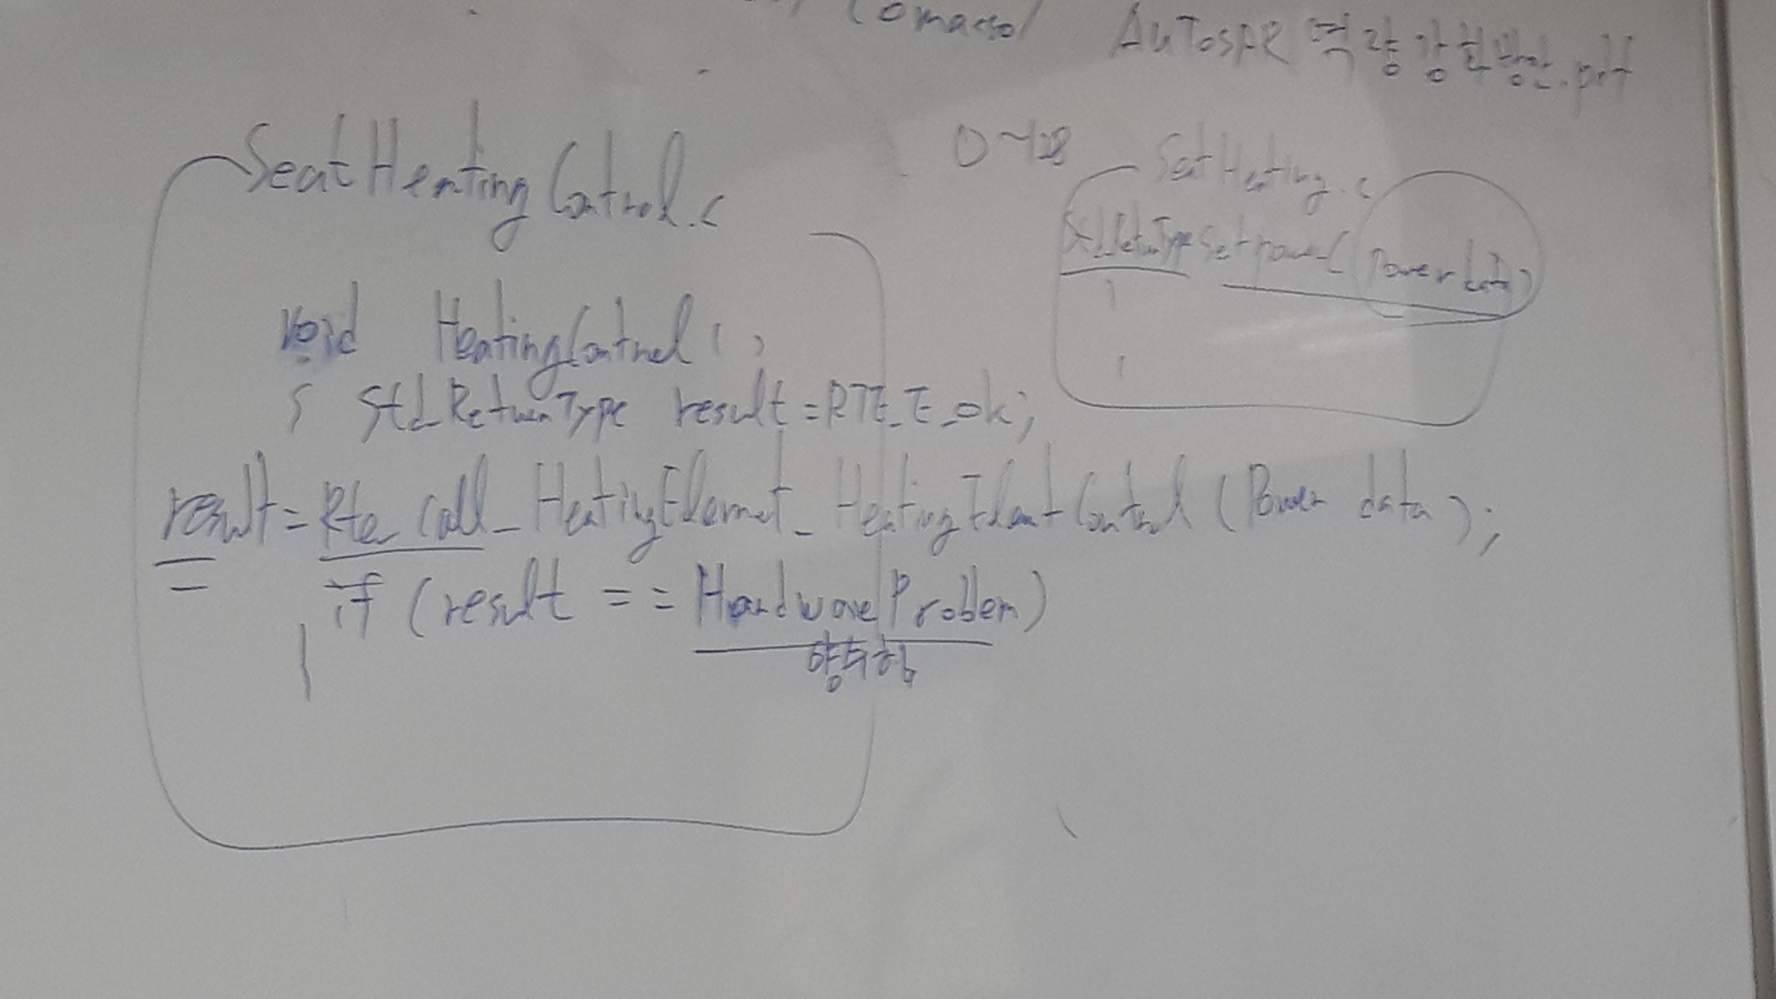 AUTOSAR 역량강화방안.pdf
SeatHeatingControl.c
void HeatingControl()
{ Std_ReturnType result = RTE_E_ok;
result = Rte_Call_HeatingElement_HeatingElementControl (Power data);
if (result == HardwareProblem)
}
0~128
SeatHeating.c
Std_ReturnType Setpower(Power data)